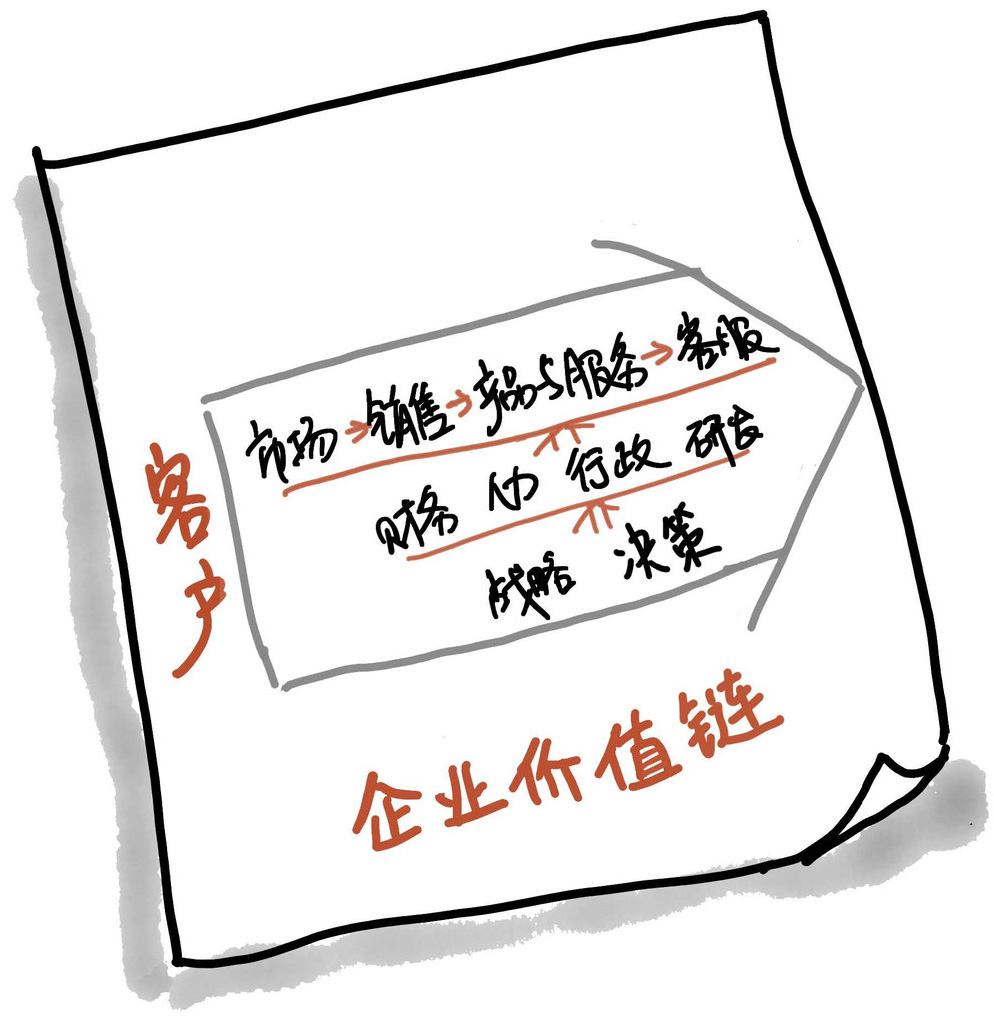 市场→销售→产品与服务→客服
财务 人力 行政 研发
战略 决策
客户
企业价值链